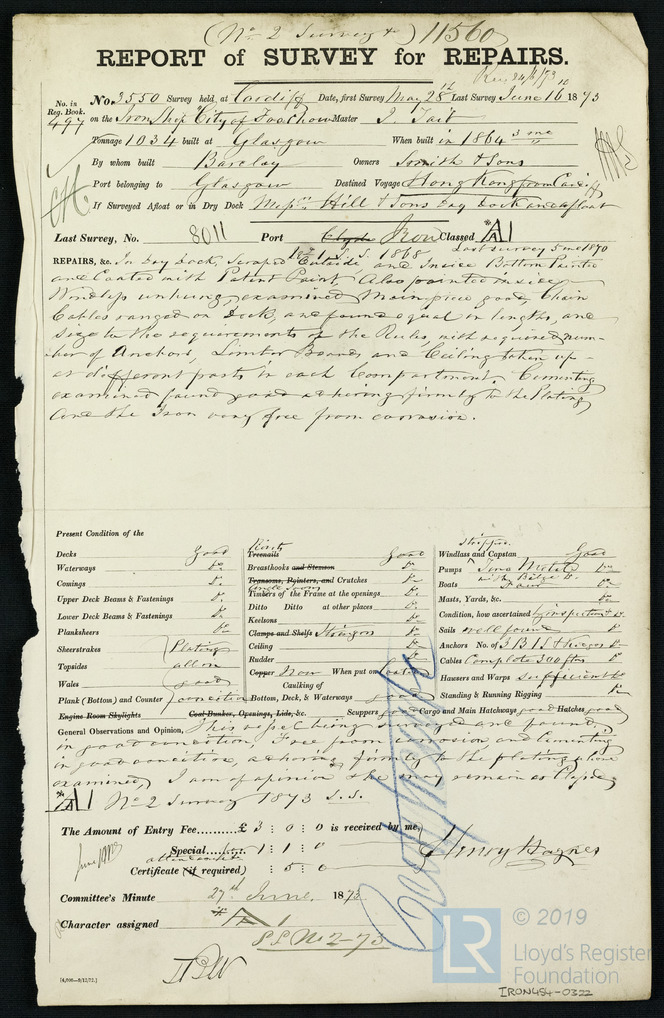 (No 2 Survey &) 11560
REPORT of SURVEY for REPAIRS.
No. in Reg. Book. No. 3550 Survey held at Cardiff Date, first Survey May 28th Last Survey June 16 1873
497 on the Iron Ship "City of Foochow" Master J. Tait
Tonnage 1034 built at Glasgow When built in 1864 3 mo
By whom built Barclay Owners Smith & Sons
Port belonging to Glasgow Destined Voyage Hong Kong from Cardiff
If Surveyed Afloat or in Dry Dock Messrs Hill & Sons Dry Dock and afloat
Last Survey, No. 8011 Port Clyde Iron Classed A1
Last survey 5 mo 1870
REPAIRS, &c. In Dry Dock, Scraped Outside and Inside Bottom Painted
and Coated with Patent Paint, Also painted inside
Windlass unhung, examined Mainpiece good, Chain
Cables ranged on Deck, and found equal in lengths, and
Size to the requirements of the Rules, with required num-
ber of Anchors, Limber Boards and Ceiling taken up
at different parts in each Compartment, Cementing
examined found good adhering firmly to the Plating
and the Iron very free from corrosion.
Present Condition of the
Decks Good
Waterways Do
Comings Do
Upper Deck Beams & Fastenings Do
Lower Deck Beams & Fastenings Do
Planksheers Do
Sheerstrakes Plating
Topsides all in
Wales good
Plank (Bottom) and Counter condition
Engine Room Skylights
Rivets
Treenails Good
Breasthooks and Stemson Do
Transoms, Pointers, and Crutches Do
Timbers of the Frame at the openings Do
Ditto Ditto at other places Do
Keelsons Do
Clamps and Shelfs Stringers Do
Ceiling Do
Rudder Do
Copper Iron When put on
Caulking of
Bottom, Deck, & Waterways good
Coal Bunker, Openings, Lids, &c. Scuppers good
Windlass and Capstan Good
Pumps Do
Boats Do
Masts, Yards, &c. Do
Condition, how ascertained by inspection Do
Sails well found Do
Anchors No. of 3 B 1 S & Kedges Do
Cables Complete 300 ftms Do
Hawsers and Warps sufficient Do
Standing & Running Rigging Do
Cargo and Main Hatchways good Hatches good
General Observations and Opinion, This vessel being surveyed and found
in good condition, Free from corrosion and Cementing
in good condition, adhering firmly to the plating where
examined, I am of opinion she may remain as Classed
A1 No 2 Survey 1873 S.S.
The Amount of Entry Fee £ 3 : 0 : 0 is received by me,
Special 1 : 1 : 0
Certificate (if required) : 5 : 0
Henry Haynes
Committee's Minute 27th June, 1873
Character assigned A1
S.S. No 2-73
© 2019
LR
Lloyd's Register
Foundation
IRON454-0322